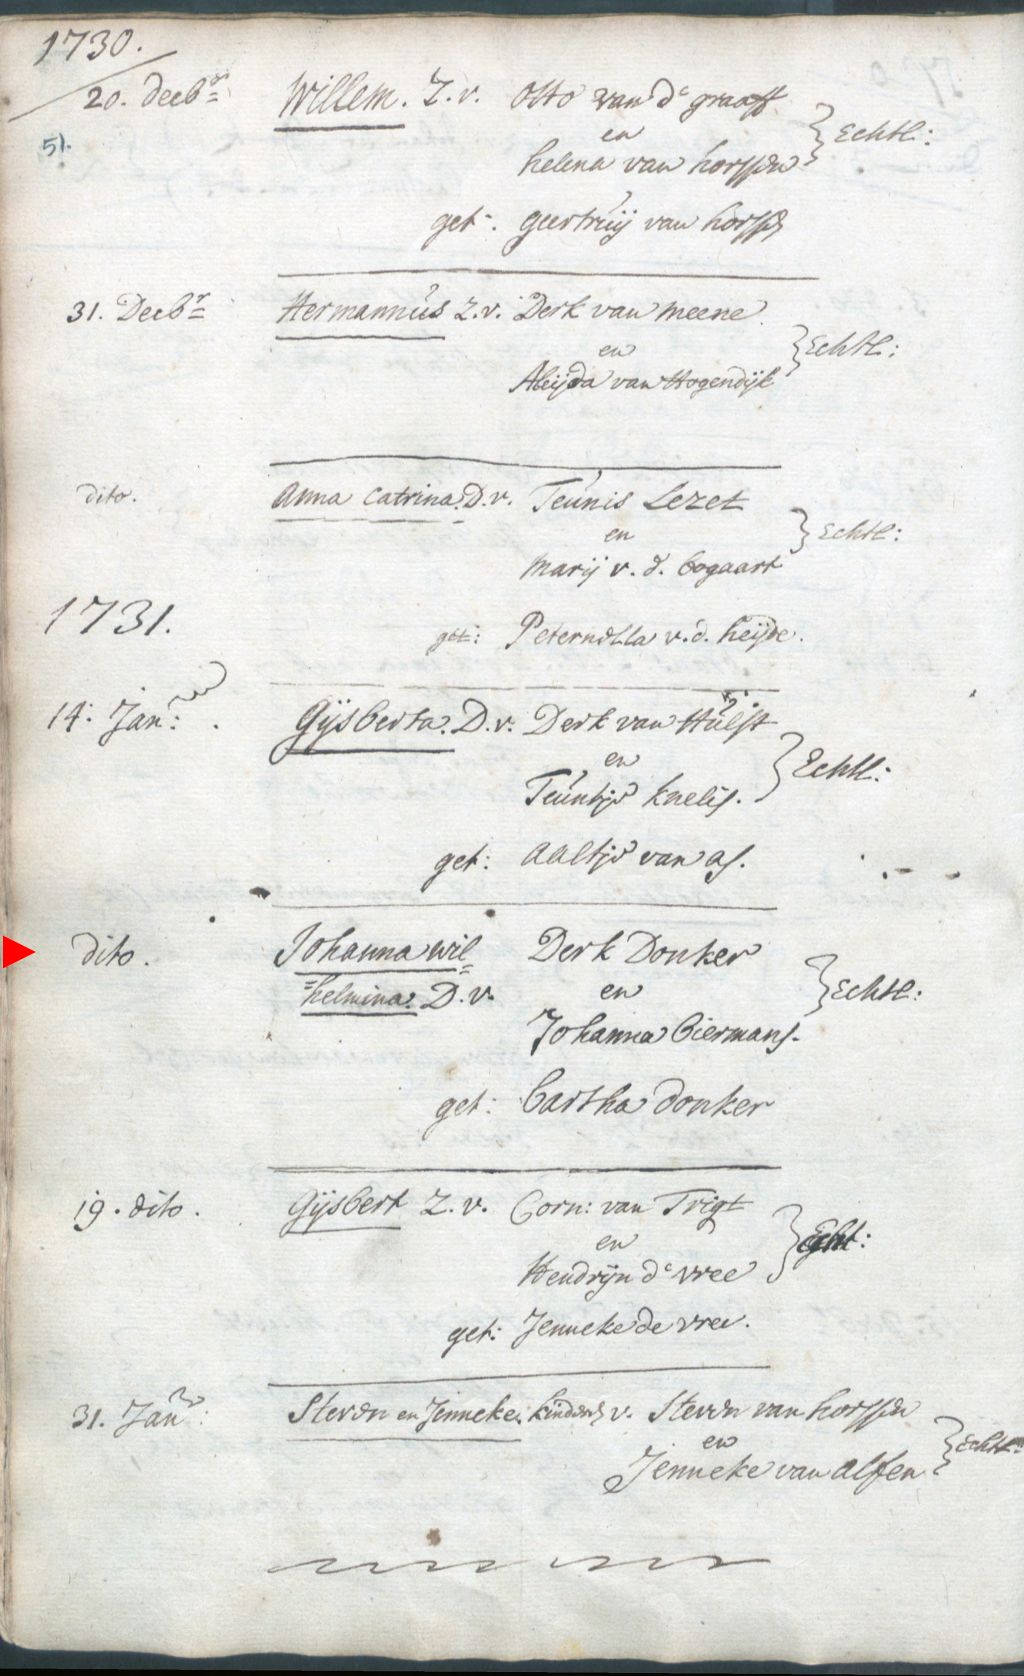 1730.
20. Decbr Willem. Z.v. Otto van de graaff
51. en } Echtl:
helena van horssen
get. geertruij van horssen
31. Decbr Hermannus Z.v. Derk van meene
en } Echtl:
Aleijda van Hogendijk
dito. Anna Catrina. D.v. Teunis Lezet
en } Echtl:
Marij v. d. bogaart
1731.
get: Peternella v.d. heijde.
14. Jan: Gijsberta. D.v. Derk van Hulst
en } Echtl:
Teuntje knelis.
get: aaltje van as.
dito. Johanna wil= Derk Donker
=helmina. D.v. en } Echtl:
Johanna biermans.
get: bartha donker
19. dito. Gijsbert Z.v. Corn: van Trigt
en } Eght:
Hendrijn de vree
get: Jenneke de vree.
31. Jan: Steven en Jenneke. kinders v. Steven van horssen
en } Echtl:
Jenneke van alfen